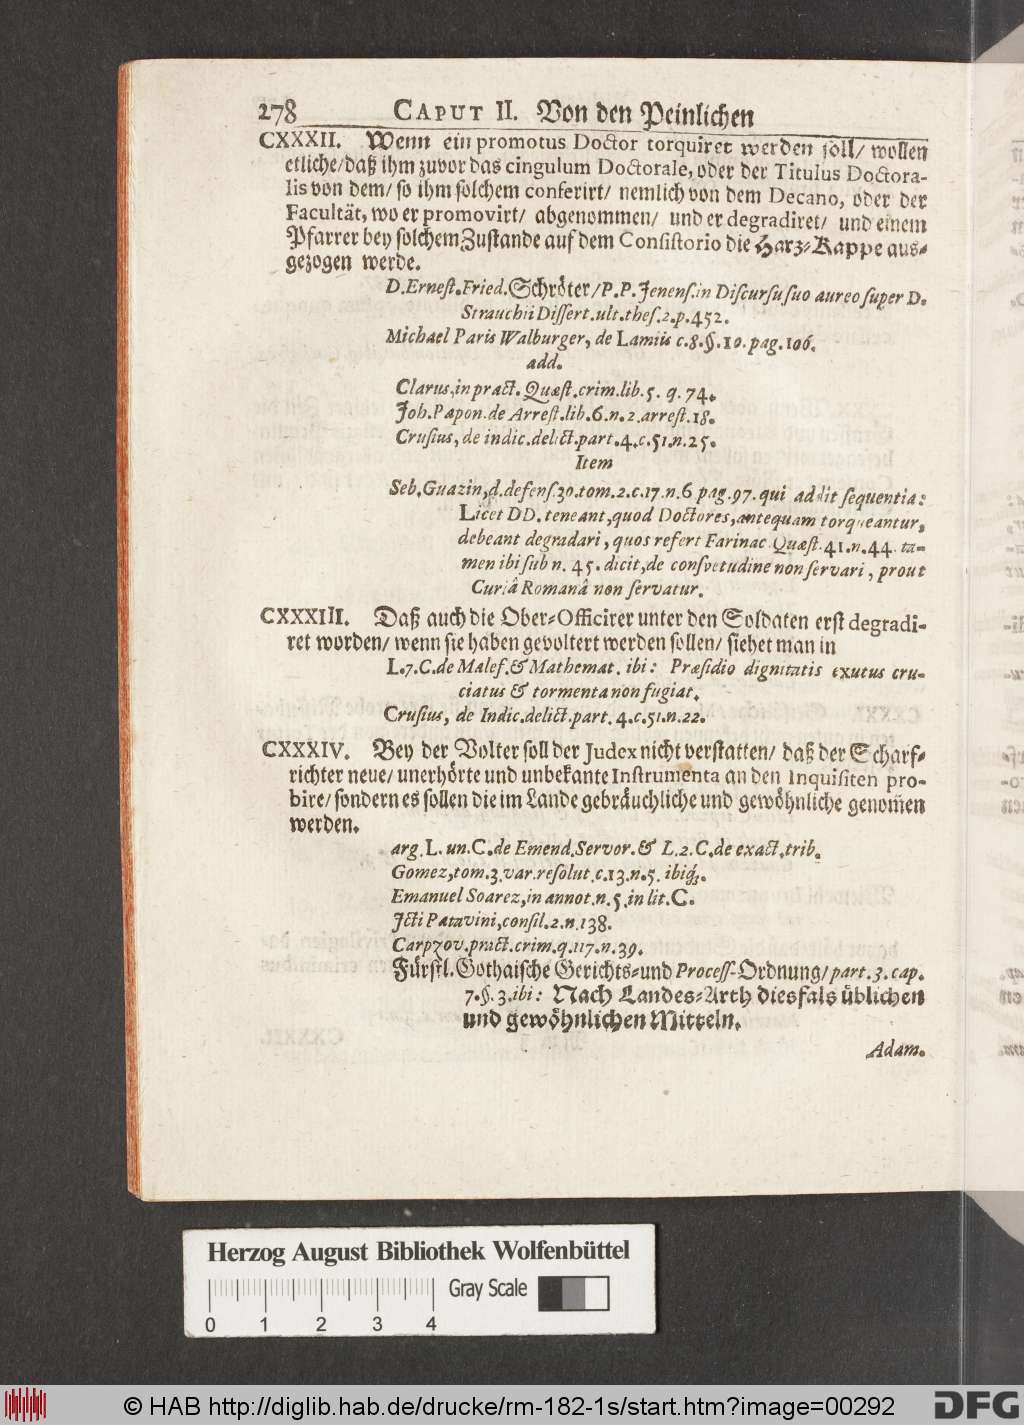 278 CAPUT II. Von den Peinlichen
CXXXII. Wenn ein promotus Doctor torquiret werden soll/ wollen
etliche/daß ihm zuvor das cingulum Doctorale, oder der Titulus Doctora-
lis von dem/ so ihm solchem conferirt/ nemlich von dem Decano, oder der
Facultät, wo er promovirt/ abgenommen/ und er degradiret/ und einem
Pfarrer bey solchem Zustande auf dem Consistorio die Harz-Kappe aus-
gezogen werde.
D. Ernest. Fried. Schröter/ P. P. Jenens. in Discursu suo aureo super D.
Strauchii Dissert. ult. thes. 2. p. 452.
Michael Paris Walburger, de Lamiis c. 8. §. 10. pag. 106.
add.
Clarus, in pract. Quæst. crim. lib. 5. q. 74.
Joh. Papon. de Arrest. lib. 6. n. 2. arrest. 18.
Crusius, de indic. delict. part. 4. c. 51. n. 25.
Item
Seb. Guazin, d. defens. 30. tom. 2. c. 17. n. 6 pag. 97. qui addit sequentia:
Licet DD. teneant, quod Doctores, antequam torqueantur,
debeant degradari, quos refert Farinac. Quæst. 41. n. 44. ta-
men ibi sub n. 45. dicit, de consvetudine non servari, prout
Curiâ Romanâ non servatur.
CXXXIII. Daß auch die Ober-Officirer unter den Soldaten erst degradi-
ret worden/ wenn sie haben gevoltert werden sollen/ siehet man in
L. 7. C. de Malef. & Mathemat. ibi: Præsidio dignitatis exutus cru-
ciatus & tormenta non fugiat.
Crusius, de Indic. delict. part. 4. c. 51. n. 22.
CXXXIV. Bey der Volter soll der Judex nicht verstatten/ daß der Scharf-
richter neue/ unerhörte und unbekante Instrumenta an den Inquisiten pro-
bire/ sondern es sollen die im Lande gebräuchliche und gewöhnliche genom̃en
werden.
arg. L. un. C. de Emend. Servor. & L. 2. C. de exact. trib.
Gomez, tom. 3. var. resolut. c. 13. n. 5. ibiq́;.
Emanuel Soarez, in annot. n. 5. in lit. C.
Jcti Patavini, consil. 2. n. 138.
Carpzov. pract. crim. q. 117. n. 39.
Fürstl. Gothaische Gerichts-und Process-Ordnung/ part. 3. cap.
7. §. 3. ibi: Nach Landes-Arth diesfals üblichen
und gewöhnlichen Mitteln.
Adam.
Herzog August Bibliothek Wolfenbüttel
Gray Scale
0 1 2 3 4
© HAB http://diglib.hab.de/drucke/rm-182-1s/start.htm?image=00292
DFG